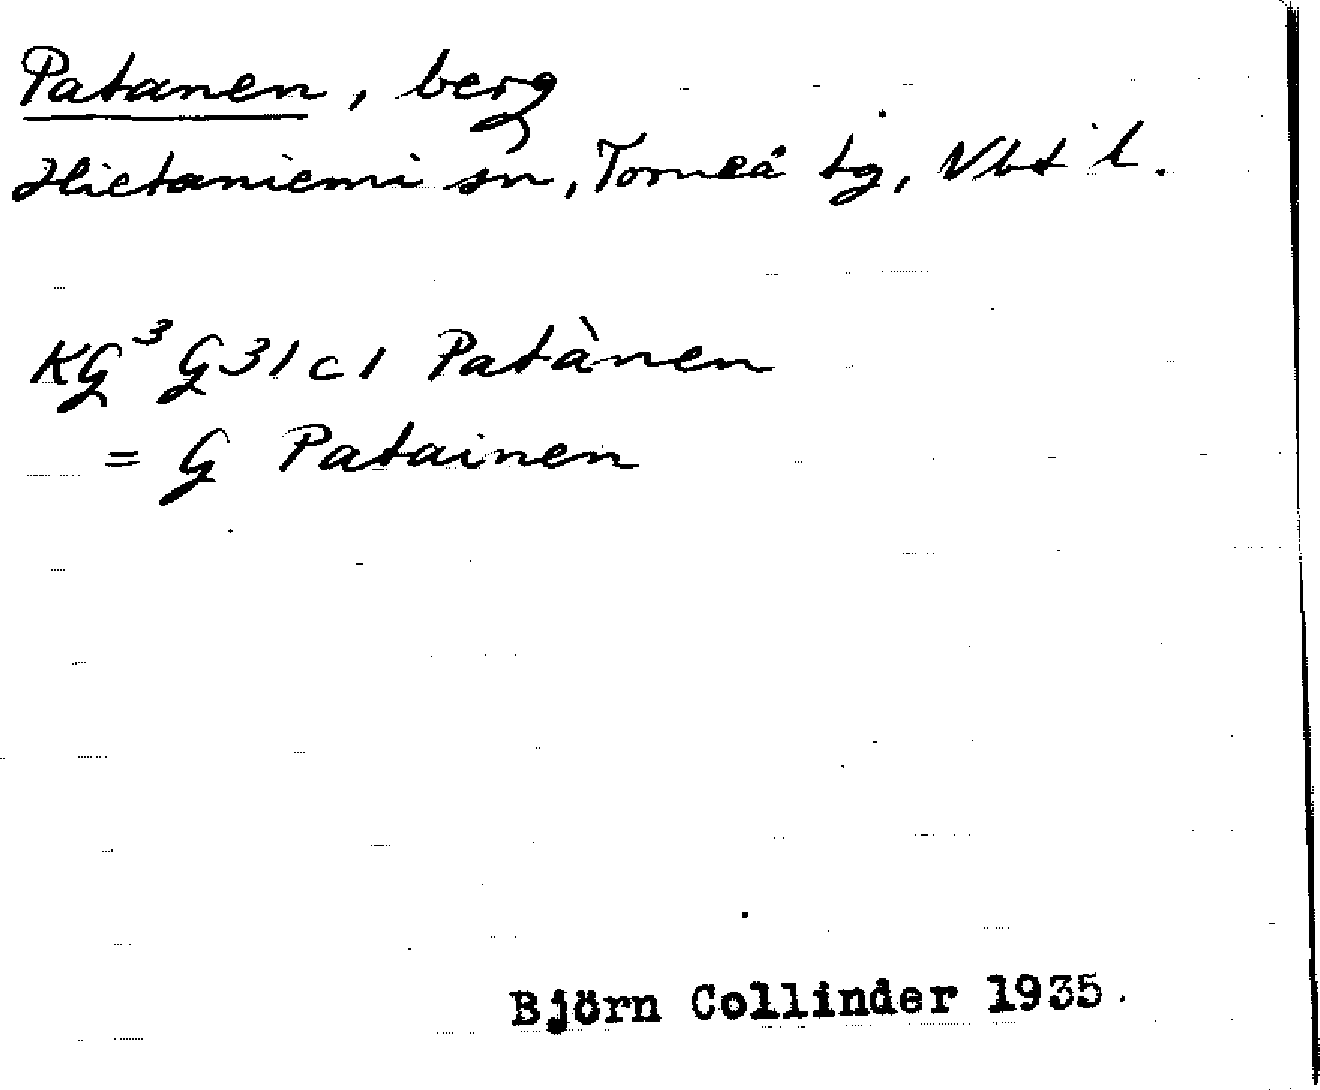 Patanen, berg
Hietaniemi sn, Torneå tg, Vbt l.
KG³ G31c1 Patànen
= G Patainen
Björn Collinder 1935.